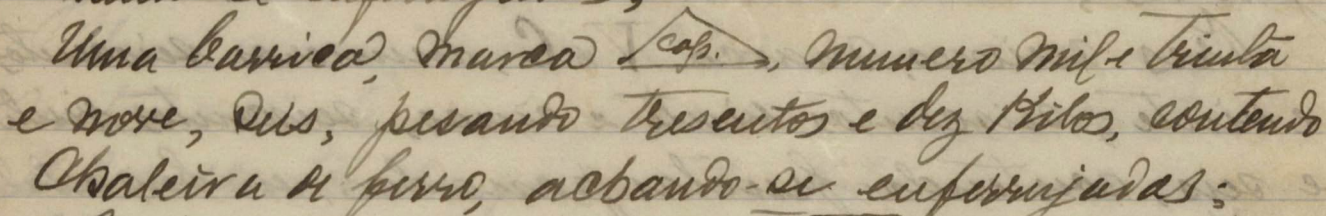 Uma barrica, marca cap., numero mil e trinta
e nove, seis, pesando tresentos e dez kilos, contendo
Chaleira de ferro, achando-se enferrujadas;